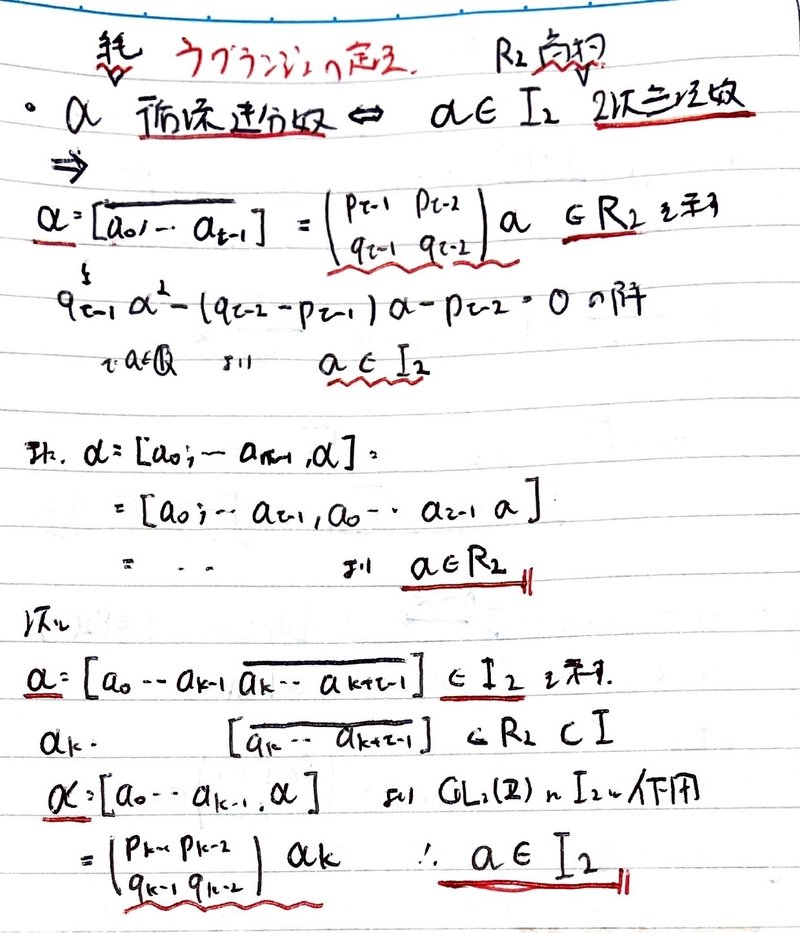 純 ラグランジュの定理. R₂ 簡約
・ α 循環連分数 ⇔ α ∈ I₂ 2次無理数
⇒
α = [a₀, … a_{τ-1}] = (p_{τ-1} p_{τ-2} q_{τ-1} q_{τ-2}) α ∈ R₂ を示す
q_{τ-1} α² - (q_{τ-2} - p_{τ-1}) α - p_{τ-2} = 0 の解
α∉Q より α ∈ I₂
また. α = [a₀; … a_{τ-1}, α] =
= [a₀; … a_{τ-1}, a₀ … a_{τ-1} α]
= … より α ∈ R₂
次に
α = [a₀ … a_{k-1} a_k … a_{k+τ-1}] ∈ I₂ を示す.
α_k = [a_k … a_{k+τ-1}] ∈ R₂ ⊂ I
α = [a₀ … a_{k-1}, α] より GL₂(Z) の I₂への作用
= (p_{k-1} p_{k-2} q_{k-1} q_{k-2}) α_k ∴ α ∈ I₂